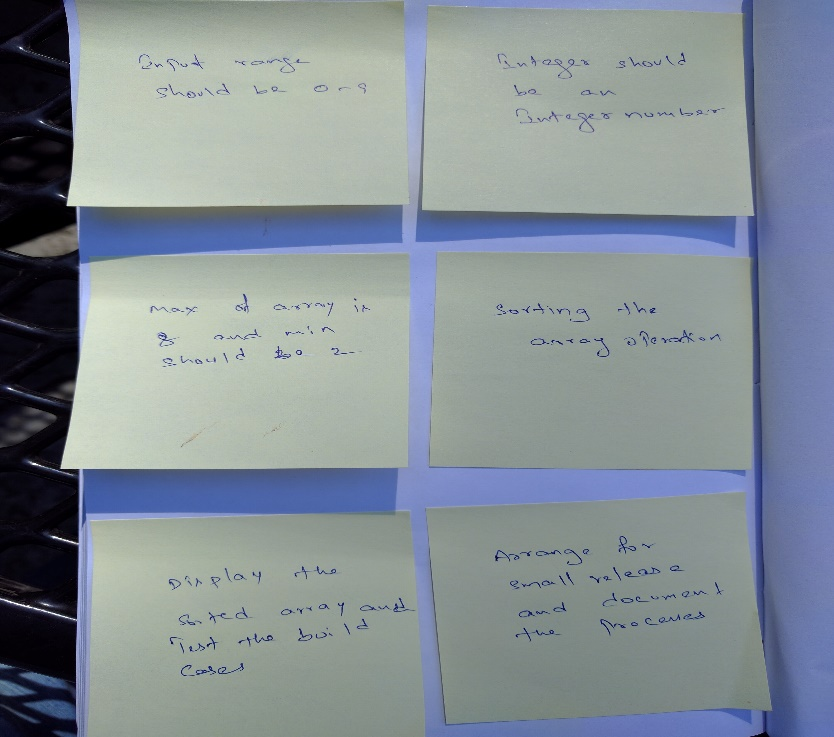 Input range
should be 0-9
Integer should
be an
Integer number
max of array is
8 and min
should be 2
Sorting the
array operation
Display the
Sorted array and
Test the build
Cases
Arrange for
small release
and document
the processes